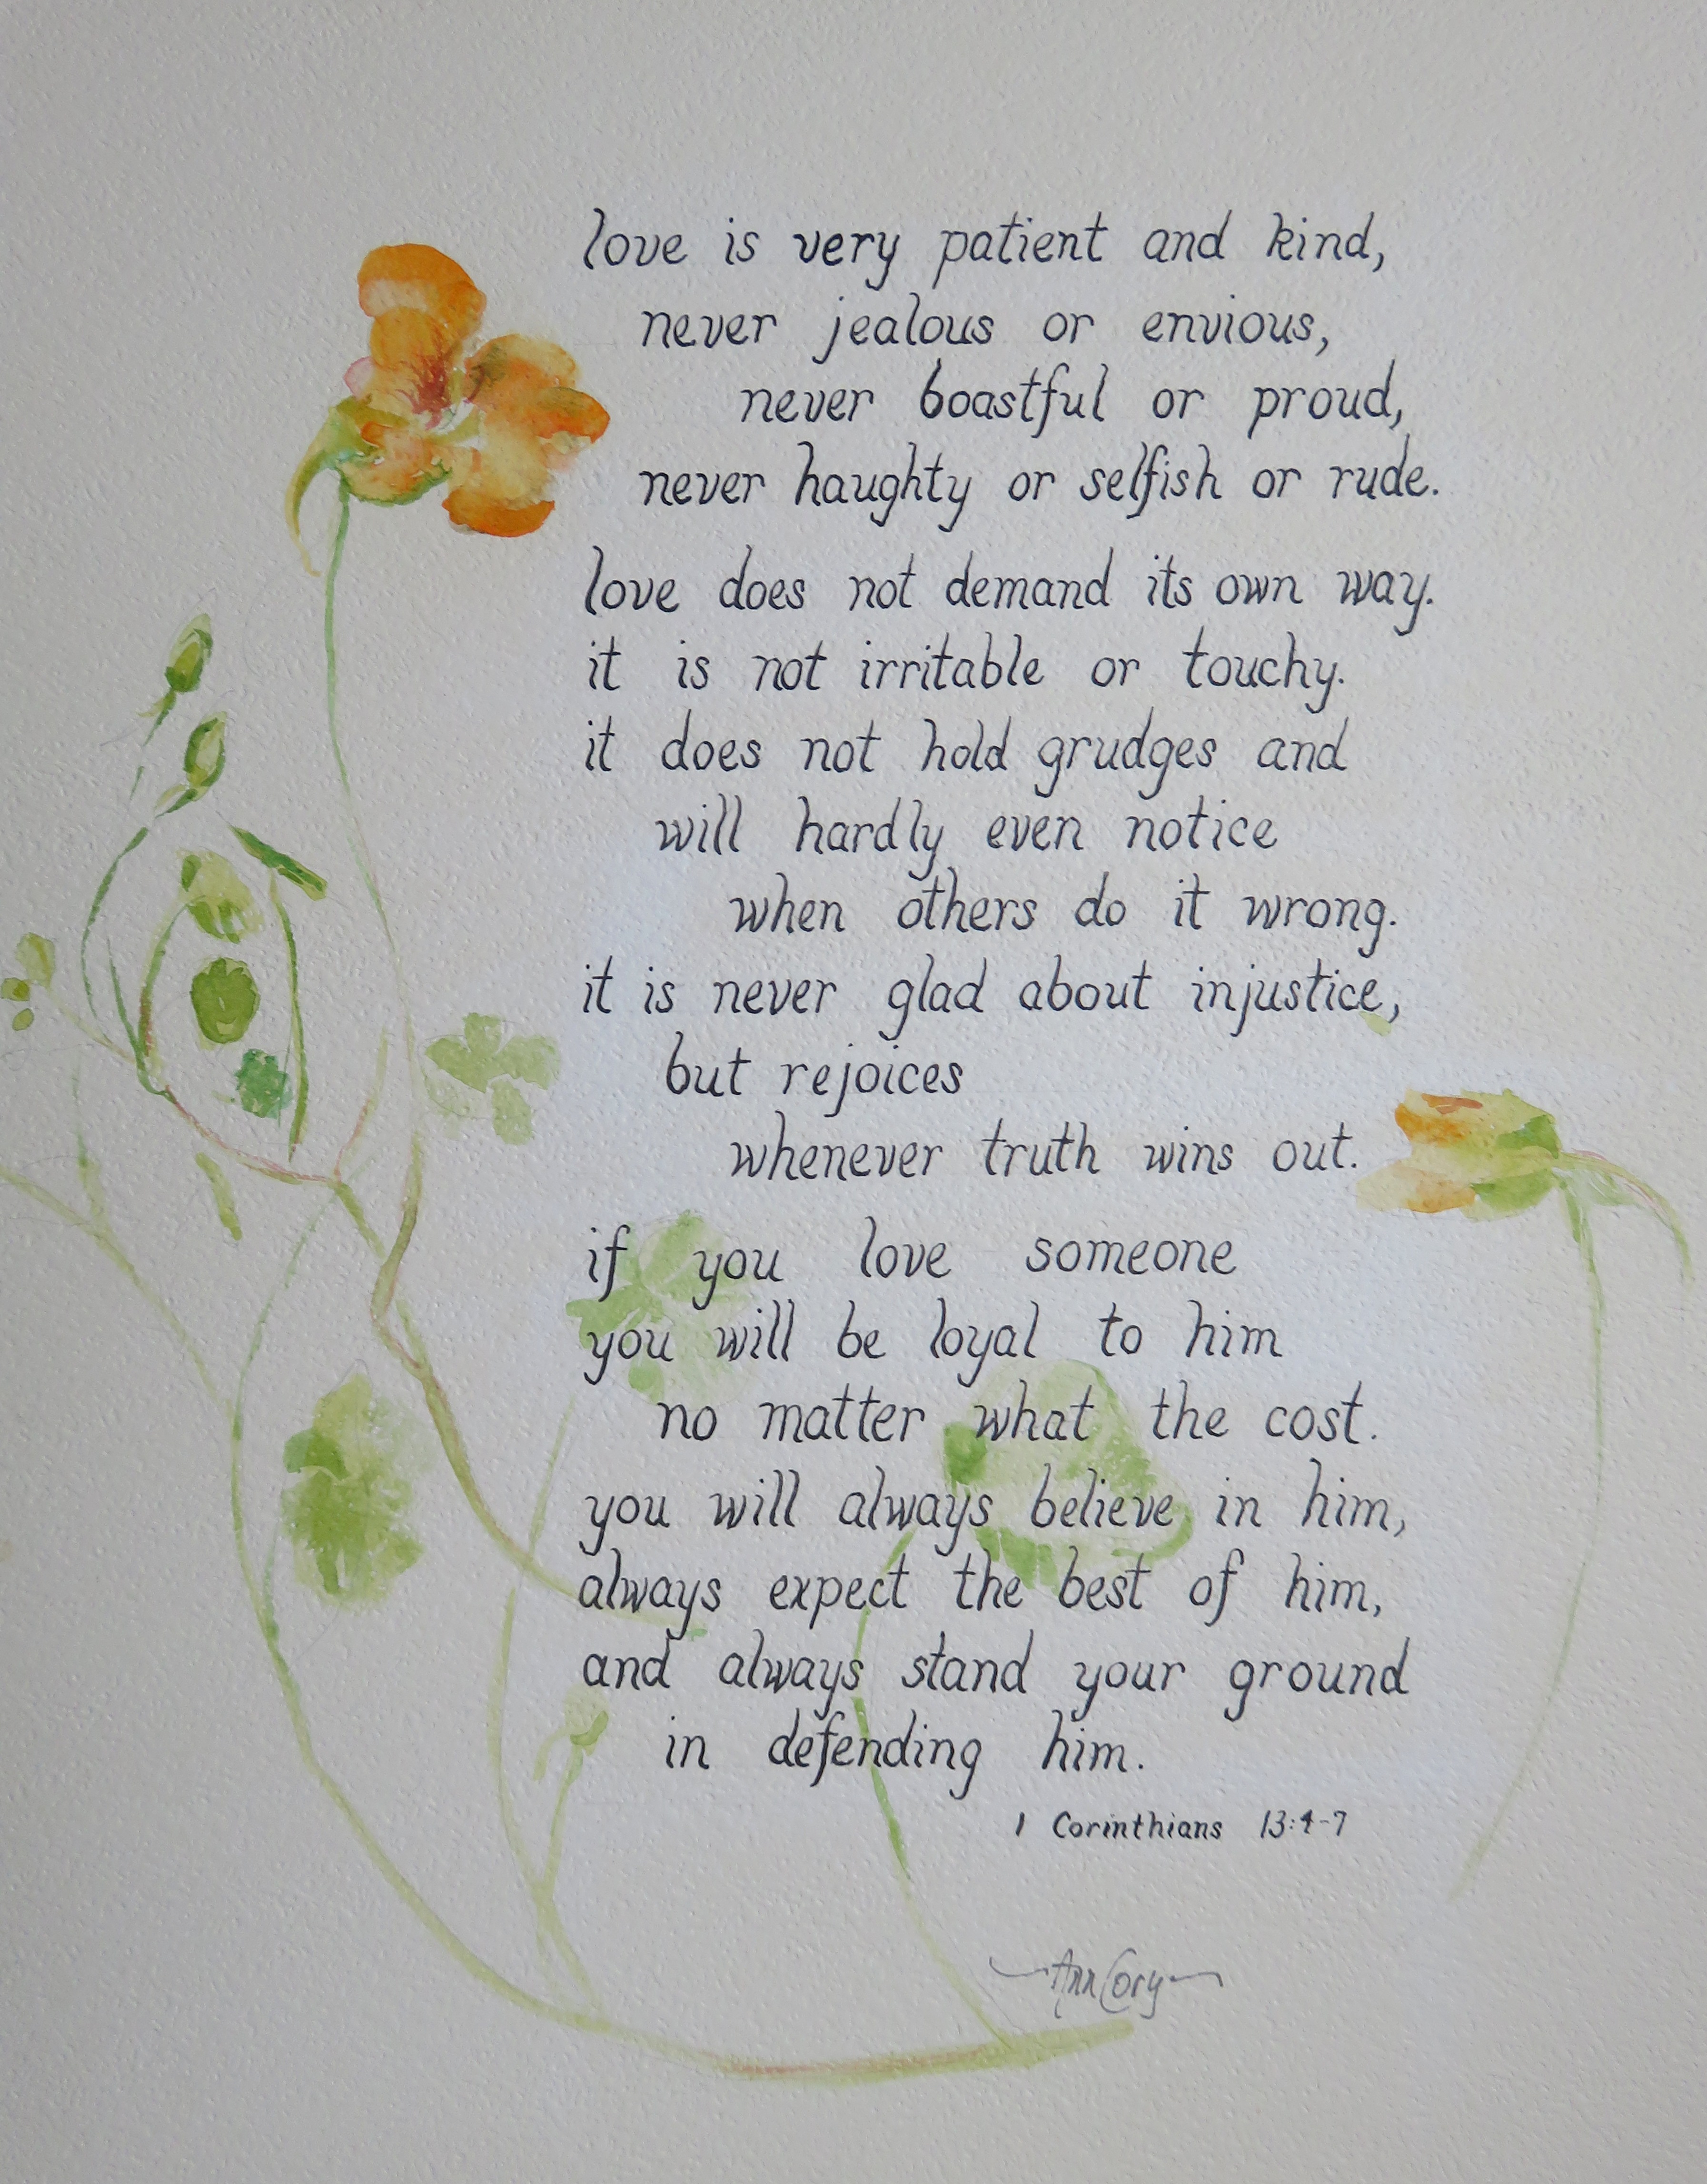 love is very patient and kind,
never jealous or envious,
never boastful or proud,
never haughty or selfish or rude.
love does not demand its own way.
it is not irritable or touchy.
it does not hold grudges and
will hardly even notice
when others do it wrong.
it is never glad about injustice,
but rejoices
whenever truth wins out.
if you love someone
you will be loyal to him
no matter what the cost.
you will always believe in him,
always expect the best of him,
and always stand your ground
in defending him.
1 Corinthians 13:4-7
Ann Cory